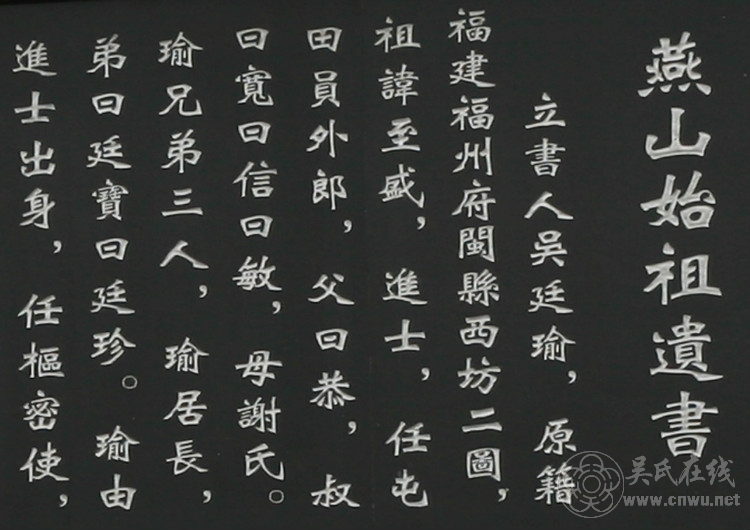 燕山始祖遺書
立書人吳廷瑜，原籍
福建福州府閩縣西坊二圖，
祖諱至盛，進士，任屯
田員外郎，父曰恭，叔
曰寬曰信曰敏，母謝氏。
瑜兄弟三人，瑜居長，
弟曰廷寶曰廷珍。瑜由
進士出身，任樞密使，
吴氏在线
www.cnwu.net